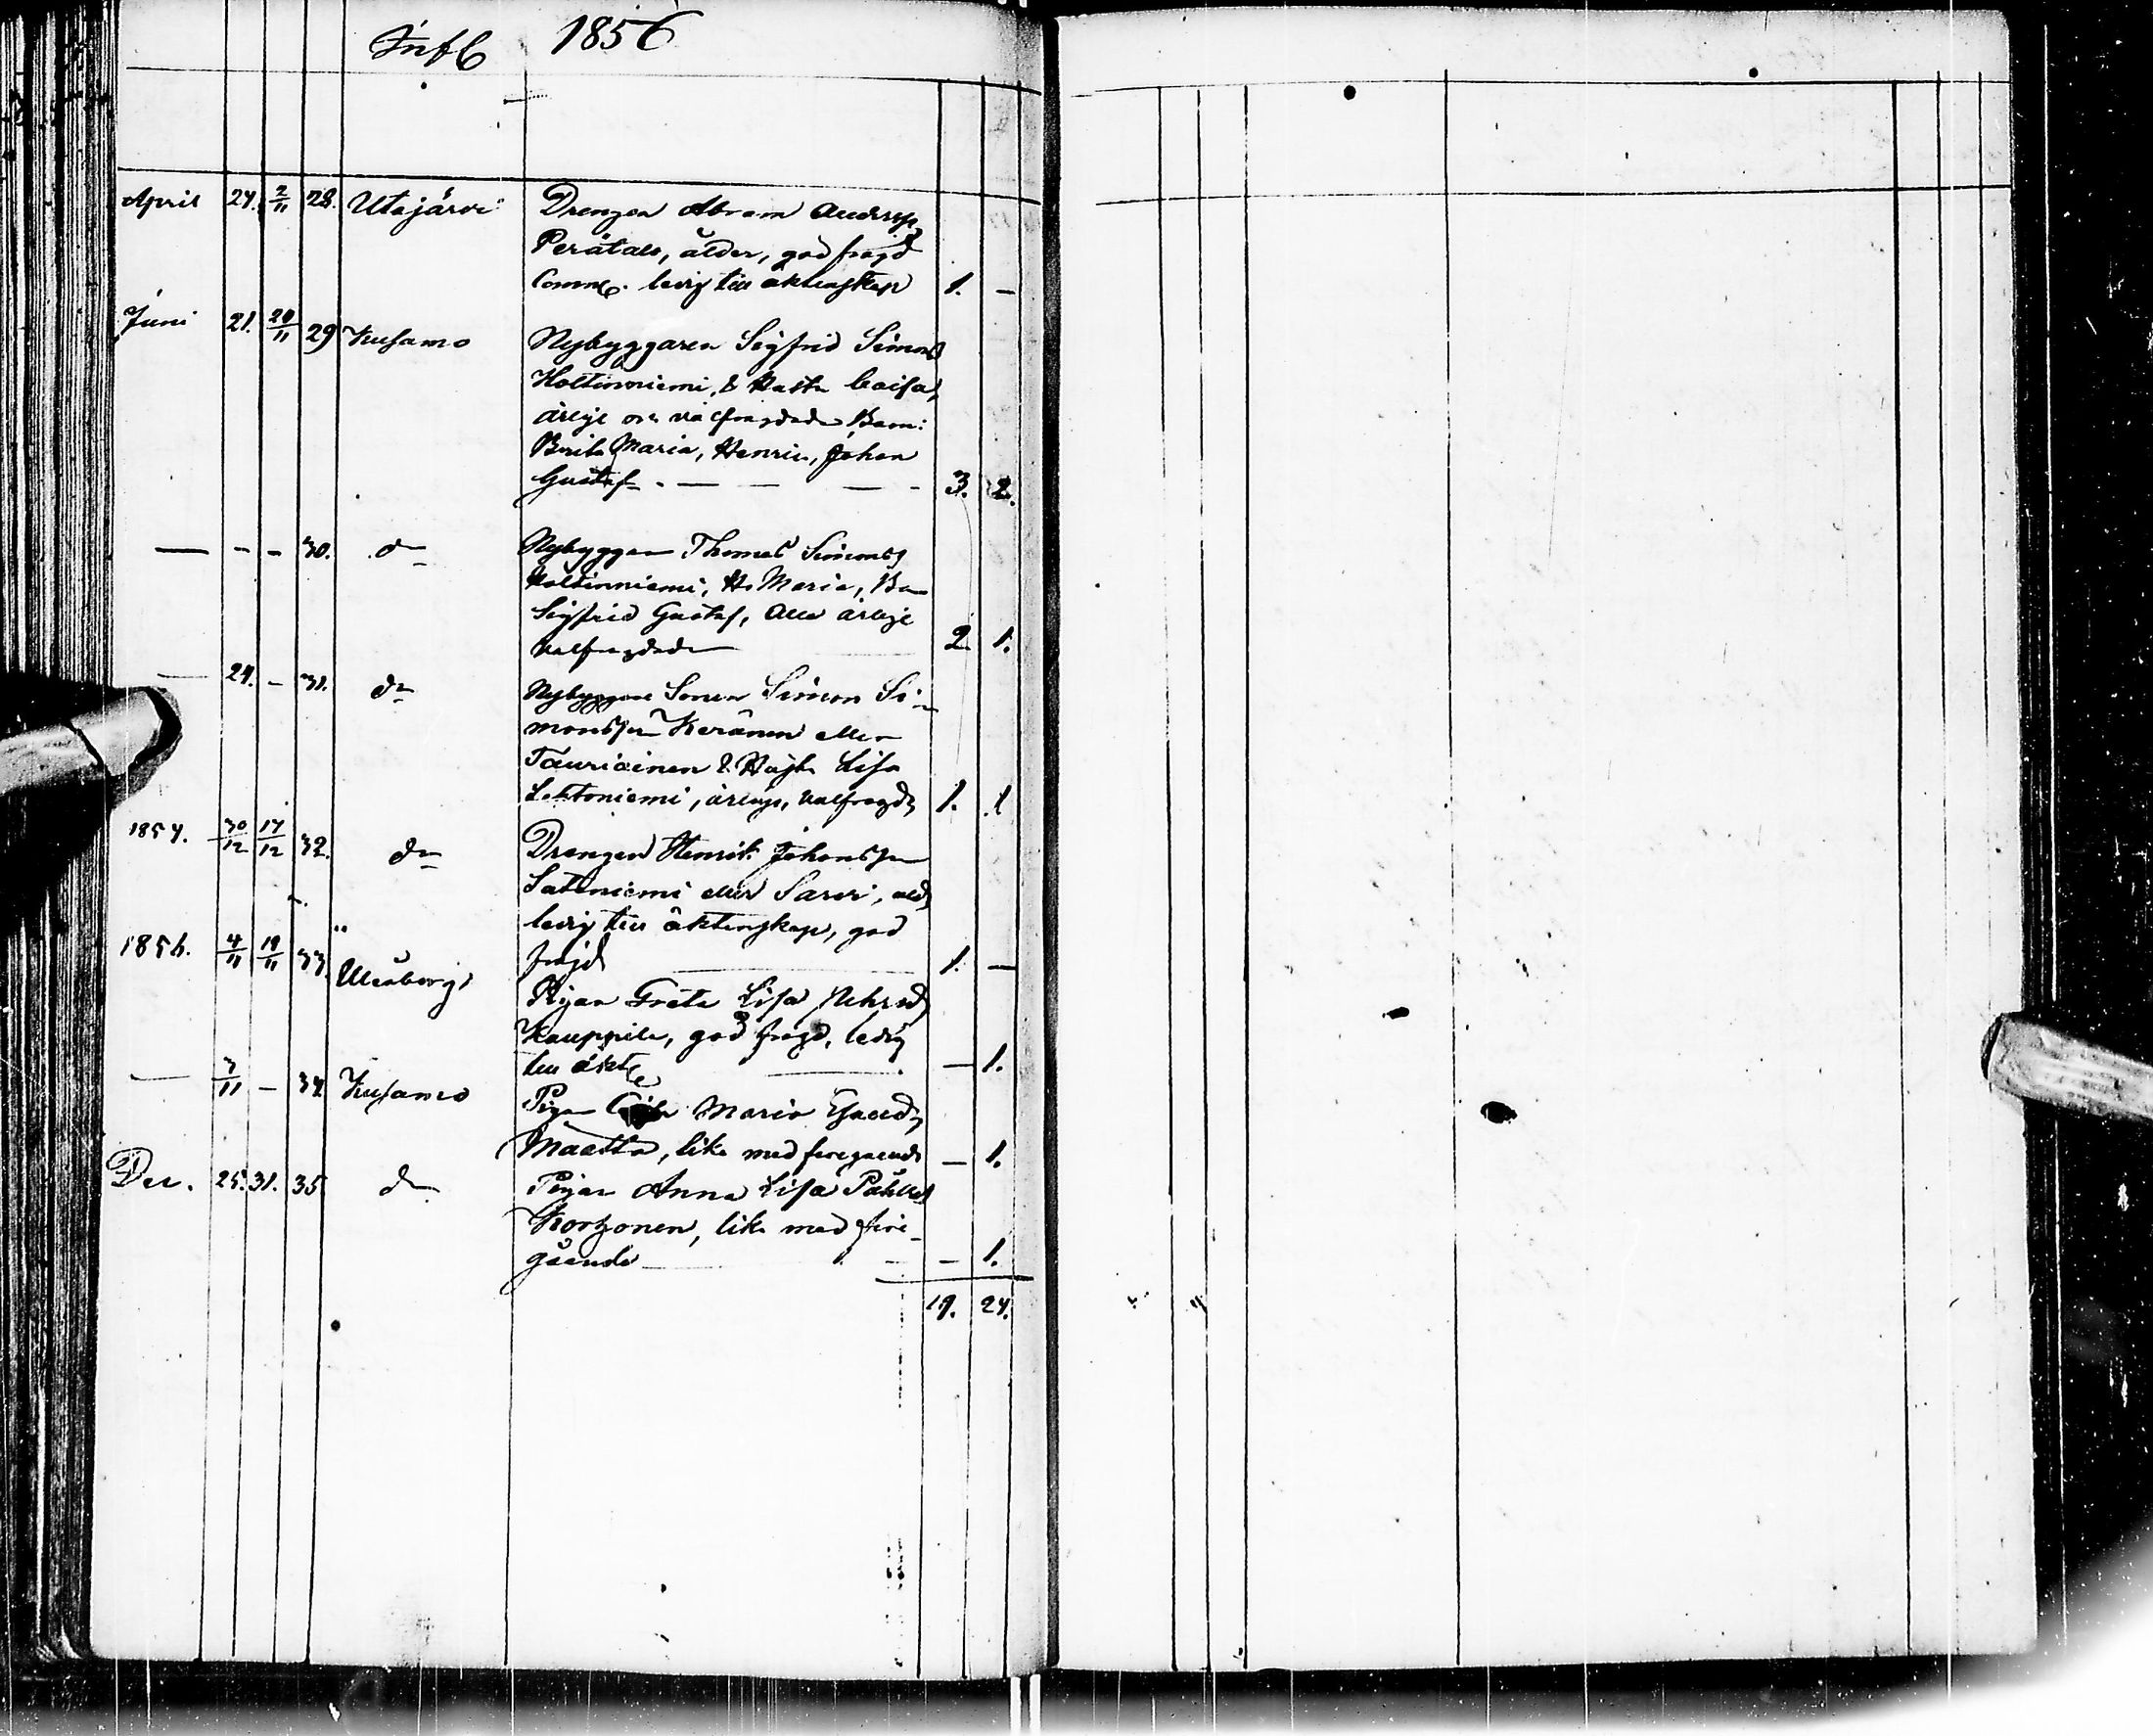 Infl 1856
April 24. 2/11 28. Utajärvi Drengen Abram Anderss
Perätalo, ålder, god frejd
Comm. ledig till äktenskap 1. —
Juni 21. 20/11 29 Kusamo Nybyggaren Sigfrid Simons
Holtinniemi, & Hustr Caisa,
ärlige och välfrägdade Barn:
Brita Maria, Henric, Johan
Gustaf. — — — - 3. 2.
— - - 30. do Nybyggaren Thomas Simonss
Holtinniemi, H. Maria, Bn
Sigfrid Gustaf, Alla ärlige
välfrägdade 2 1.
— 24. - 31. do Nybyggare Sonen Simon Si-
monsson Keränen eller
Tauriainen & Hust Lisa
Lehtoniemi, ärlige, välfrägd 1. 1
1854. 30/12 17/12 32. do Drengen Henrik Johansson
Satoniemi eller Sarvi, åld
ledig till äktenskap, god
frejd 1. —
1856. 4/11 19/11 33. Uleåborgs Pigan Greta Lisa
Kauppila, god frägd, ledig
till äkt — 1.
— 3/11 — 34 Kusamo Pigan Maria Esaesd
Maatta, lika med föregående — 1.
Dec. 25. 31. 35 do Pigan Anna Lisa Påhlsd
Korhonen, lika med före-
gående — — 1.
19. 24.